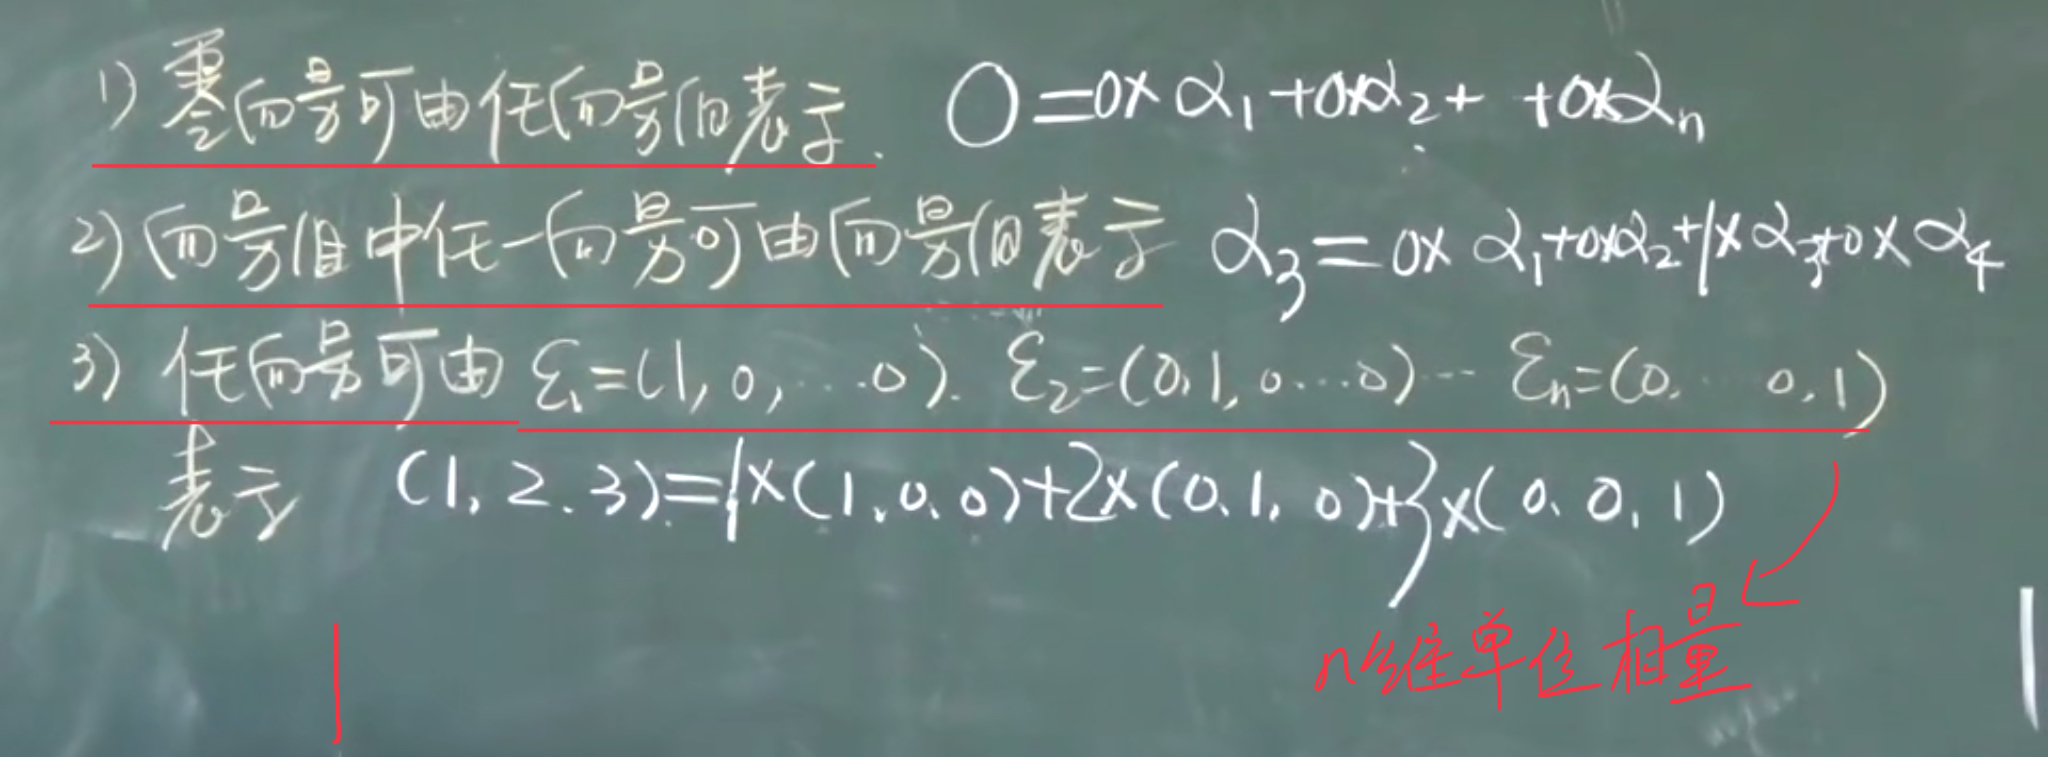 1) 零向量可由任向量组表示. 0=0×α₁+0×α₂+ +0×αₙ
2) 向量组中任一向量可由向量组表示 α₃=0×α₁+0×α₂+1×α₃+0×α₄
3) 任向量可由 ε₁=(1,0,…0). ε₂=(0,1,0…0)… εₙ=(0,…0,1)
表示 (1,2,3)=1×(1,0,0)+2×(0,1,0)+3×(0,0,1)
n维单位相量